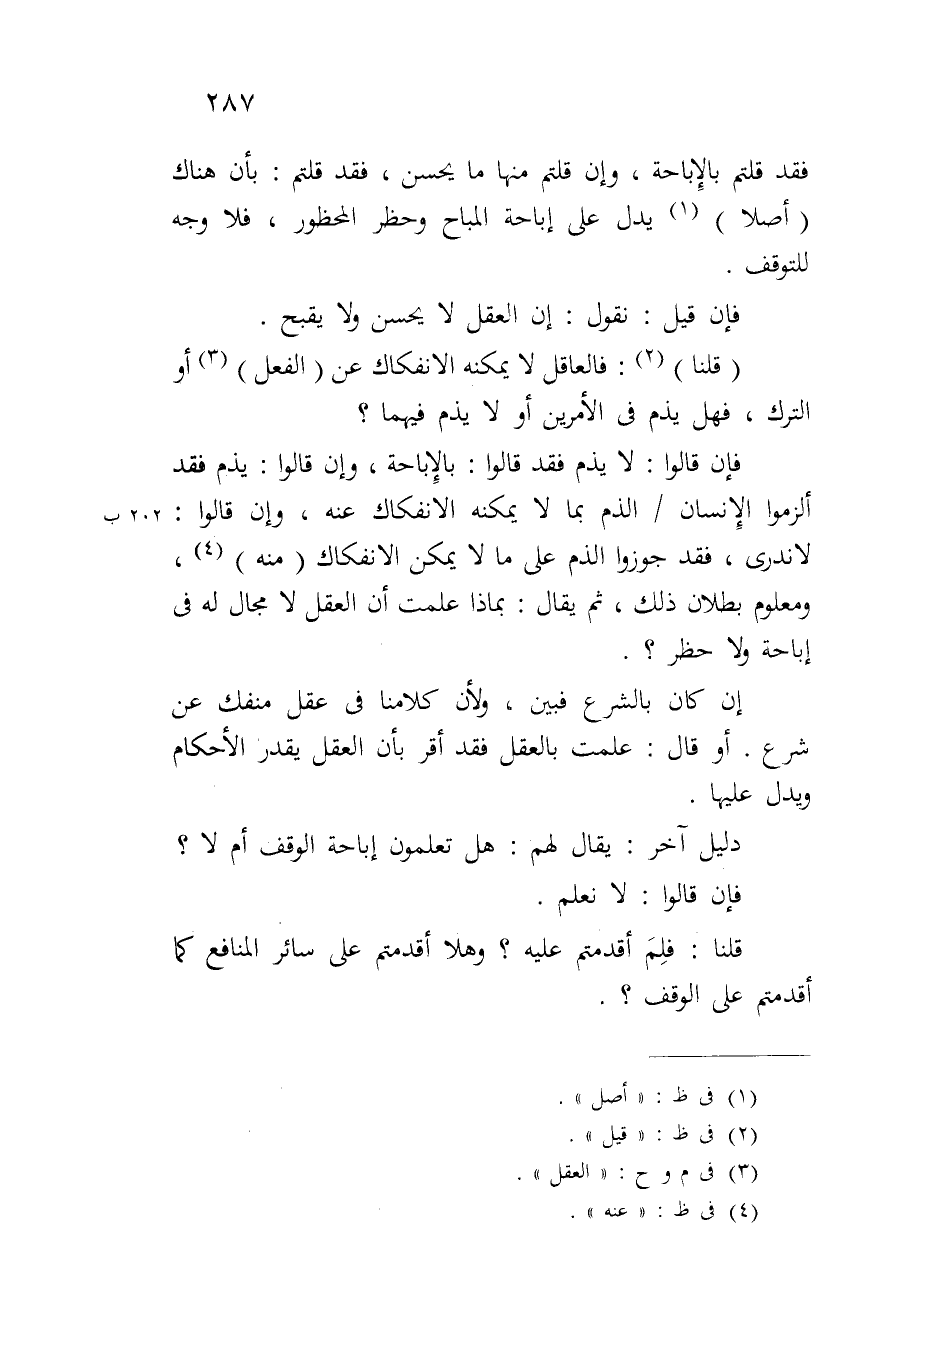 ٢٨٧
فقد قلتم بالإباحة ، وإن قلتم منها ما يحسن ، فقد قلتم : بأن هناك
( أصلا ) (١) يدل على إباحة المباح وحظر المحظور ، فلا وجه
للتوقف .
فإن قيل : نقول : إن العقل لا يحسن ولا يقبح .
( قلنا ) (٢) : فالعاقل لا يمكنه الانفكاك عن ( الفعل ) (٣) أو
الترك ، فهل يذم فى الأمرين أو لا يذم فيهما ؟
فإن قالوا : لا يذم فقد قالوا : بالإباحة ، وإن قالوا : يذم فقد
ألزموا الإنسان / الذم بما لا يمكنه الانفكاك عنه ، وإن قالوا : ٢٠٢ ب
لاندرى ، فقد جوزوا الذم على ما لا يمكن الانفكاك ( منه ) (٤) ،
ومعلوم بطلان ذلك ، ثم يقال : بماذا علمت أن العقل لا مجال له فى
إباحة ولا حظر ؟ .
إن كان بالشرع فبين ، ولأن كلامنا فى عقل منفك عن
شرع . أو قال : علمت بالعقل فقد أقر بأن العقل يقدر الأحكام
ويدل عليها .
دليل آخر : يقال لهم : هل تعلمون إباحة الوقف أم لا ؟
فإن قالوا : لا نعلم .
قلنا : فلِمَ أقدمتم عليه ؟ وهلا أقدمتم على سائر المنافع كما
أقدمتم على الوقف ؟ .
(١) فى ظ : « أصل » .
(٢) فى ظ : « قيل » .
(٣) فى م و ح : « العقل » .
(٤) فى ظ : « عنه » .